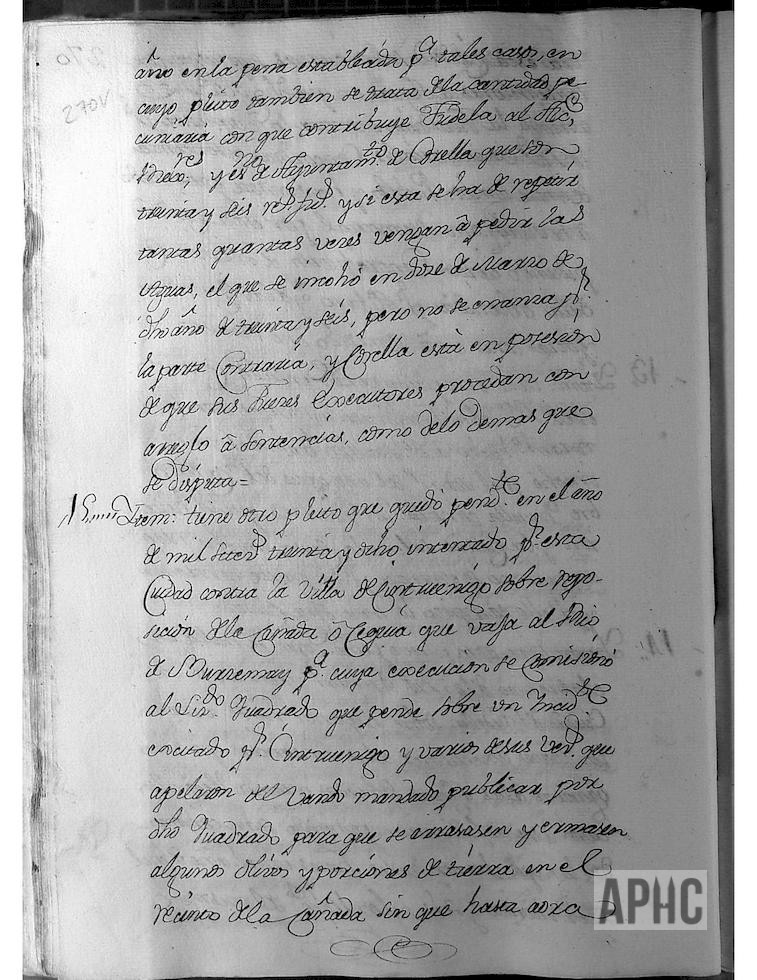 270
270V
año en la pena establecida p.ª tales casos, en
cuyo pleito tambien se trata de la cantidad pe-
cuniaria con que contribuye Tudela al Alc.e,
y es.no de Ayuntam.to de Corella que son
treinta y seis r.s y si esta se ha de repetir
tantas quantas veces vengan â pedir las
Aguas, el que se incohó en doze de Marzo de
dho año de treinta y seis, pero no se enanza p.r
la parte Contraria, y Corella està en posesion
de que sus Juezes Executores procedan con
arreglo â sentencias, como delo demas que
se disputa=
15 Item: tiene otro pleito que quedò pend.te en el año
de mil setez.s treinta y ocho intentado p.r esta
Ciudad contra la Villa de Cintruenigo sobre repo-
sicion de la Cañada ô Cequia que vaja al Rio
de Burzemay p.ª cuya execucion se Comisionò
al Quadrado que pende sobre un Incid.te
excitado p.r Cintruenigo y varios desus vez.s que
apelaron del Vando mandado publicar por
dho Quadrado para que se arrasasen y ermasen
algunos olivos y porciones de tierra en el
recinto de la Cañada sin que hasta aora
APHC